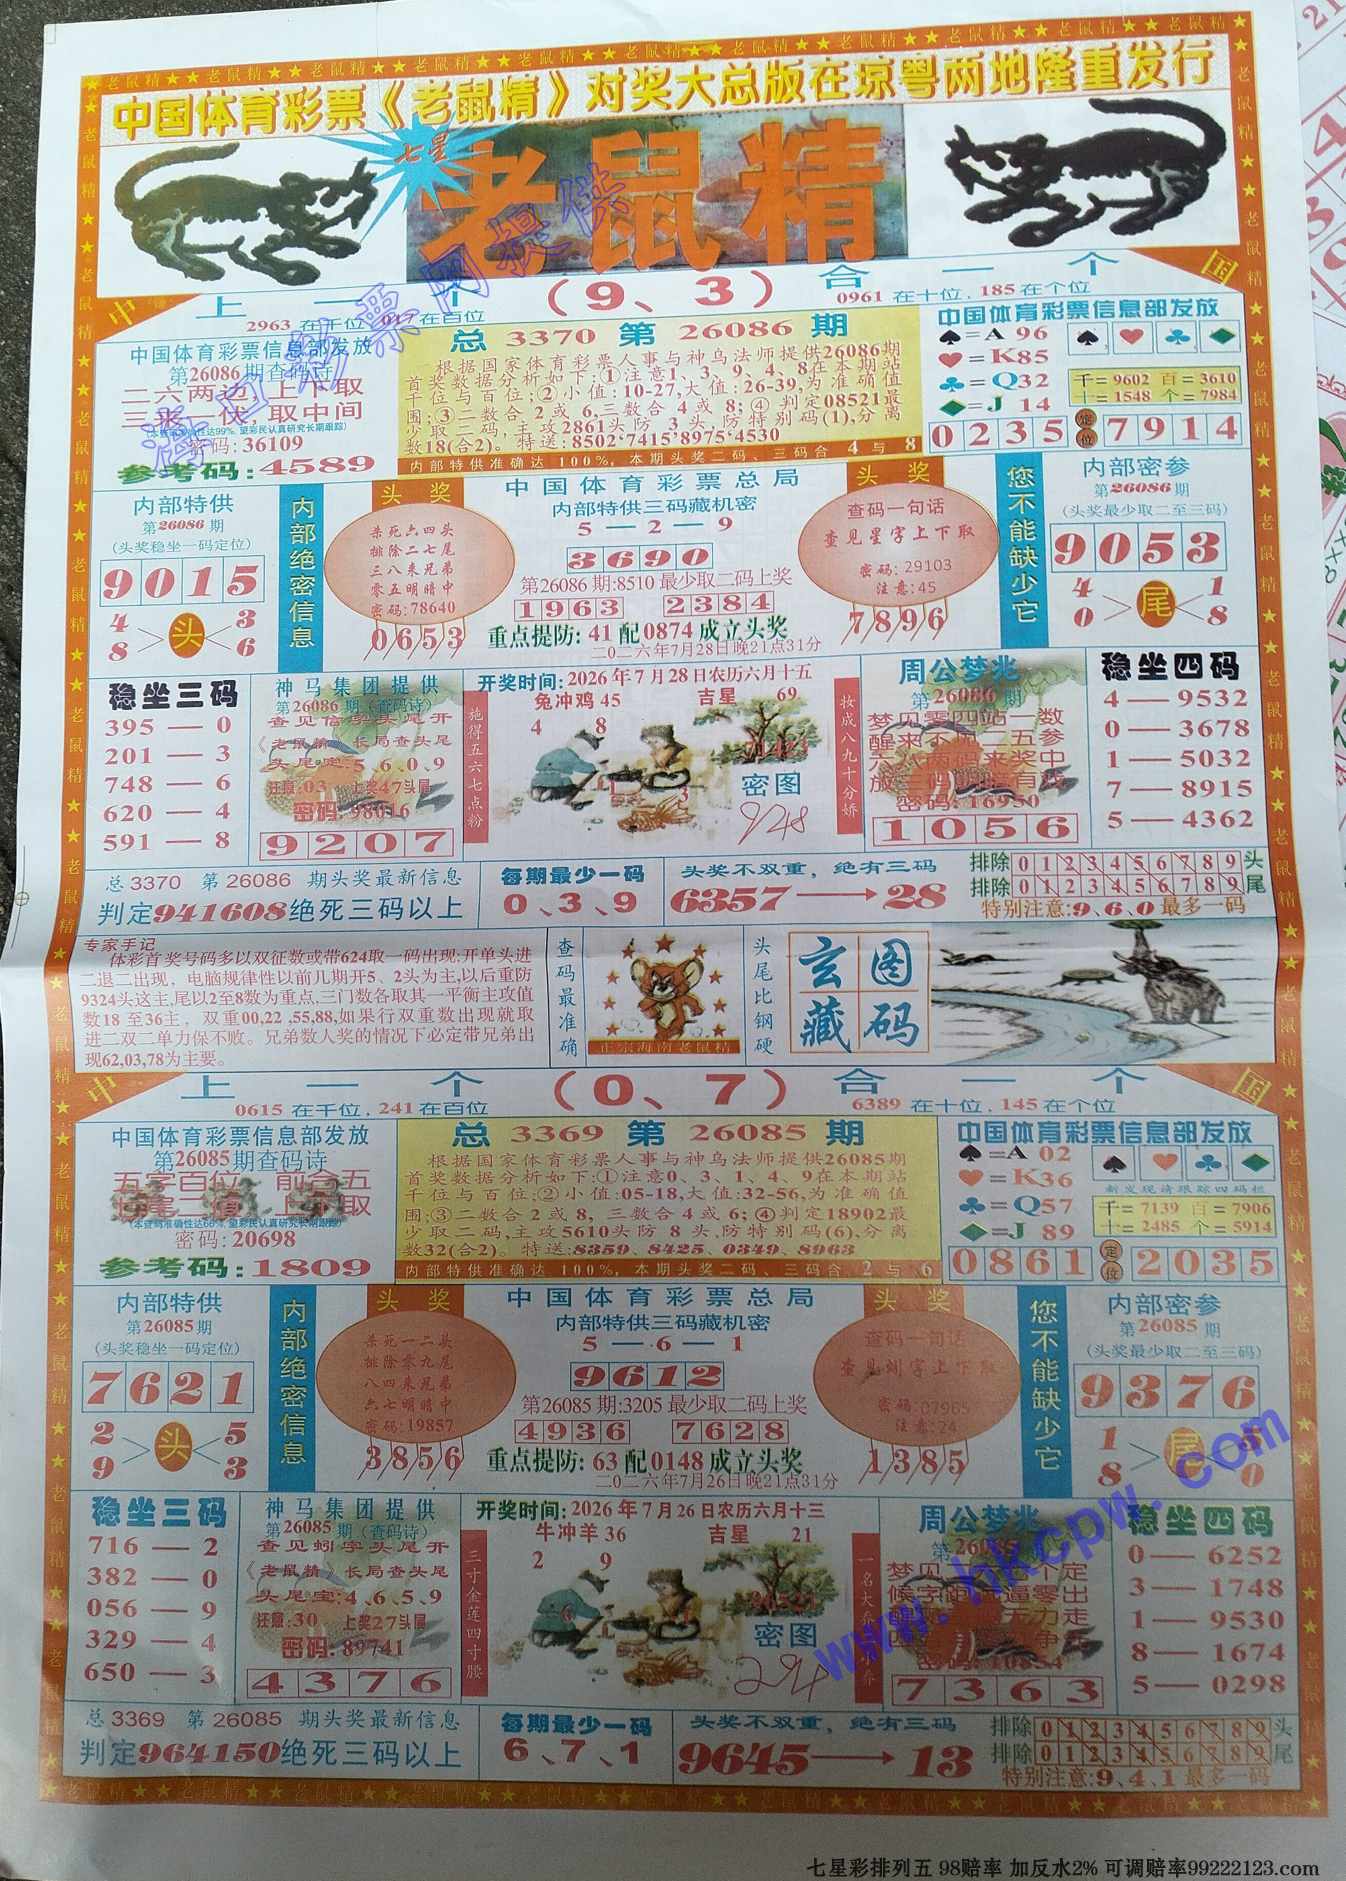 中国体育彩票《老鼠精》对奖大总版在琼粤两地隆重发行
七星
老鼠精
中
国
上一个(9、3)合一个
2963 在千位, 017 在百位
0961 在十位, 185 在个位
中国体育彩票信息部发放
第26086期查码诗
二六两边,上下取
三来一伏,取中间
(本查码准确性达99%, 望彩民认真研究长期跟踪)
密码:36109
参考码:4589
总 3370 第 26086 期
根据国家体育彩票人事与神乌法师提供26086期
首奖数据分析如下:①注意1、3、9、4、8在本期站
千位与百位;②小值:10-27,大值:26-39,为准确值
围;③二数合 2 或 6,三数合 4 或 8;④判定08521最
少取二码,主攻2861头防 3 头,防特别码(1),分离
数18(合2)。特送:8502·7415·8975·4530
内部特供准确达 100%, 本期头奖二码、三码合 4 与 8
中国体育彩票信息部发放
♠=A 96
♥=K85
♣=Q32
♦=J 14
♠ ♥ ♣ ♦
千=9602 百=3610
十=1548 个=7984
0235 定位 7914
内部特供
第26086期
(头奖稳坐一码定位)
9015
4 8 > 头 < 3 6
内部绝密信息
头奖
杀死六四头
排除二七尾
三八来兄弟
零五明暗中
密码:78640
0653
中国体育彩票总局
内部特供三码藏机密
5—2—9
3690
第26086期:8510最少取二码上奖
1963 2384
重点提防: 41 配 0874 成立头奖
二〇二六年7月28日晚21点31分
头奖
查码一句话
查见星字上下取
密码:29103
注意:45
7896
您不能缺少它
内部密参
第26086期
(头奖最少取二至三码)
9053
4 0 > 尾 < 1 8
稳坐三码
395 — 0
201 — 3
748 — 6
620 — 4
591 — 8
神马集团提供
第26086期(查码诗)
查见信字头尾开
《老鼠精》长局查头尾
头尾宝:5、6、0、9
注意:03 上奖47头尾
密码:98016
9207
开奖时间:2026年7月28日农历六月十五
兔冲鸡 45 吉星 69
4 8
施得五六七点粉
妆成八九十分娇
密图
928
周公梦兆
第26086期
梦见零四站一数
密码:16950
1056
稳坐四码
4 — 9532
0 — 3678
1 — 5032
7 — 8915
5 — 4362
总 3370 第 26086 期头奖最新信息
判定941608绝死三码以上
每期最少一码
0、3、9
头奖不双重, 绝有三码
6357 → 28
排除 0123456789 头
排除 0123456789 尾
特别注意:9、6、0 最多一码
专家手记
体彩首奖号码多以双征数或带624取一码出现:开单头进
二退二出现, 电脑规律性以前几期开5、2头为主,以后重防
9324头这主,尾以2至8数为重点,三门数各取其一平衡主攻值
数18 至36主, 双重00,22 .55,88,如果行双重数出现就取
进二双二单力保不败。兄弟数人奖的情况下必定带兄弟出
现62,03,78为主要。
查码最准确
正宗海南老鼠精
头尾比钢硬
玄图藏码
中
国
上一个(0、7)合一个
0615 在千位, 241 在百位
6389 在十位, 145 在个位
中国体育彩票信息部发放
第26085期查码诗
五字百位, 前合五
(本查码准确性达66%, 望彩民认真研究长期跟踪)
密码:20698
参考码:1809
总 3369 第 26085 期
根据国家体育彩票人事与神乌法师提供26085期
首奖数据分析如下:①注意0、3、1、4、9在本期站
千位与百位;②小值:05-18,大值:32-56,为准确值
围;③二数合 2 或 8, 三数合 4 或 6;④判定18902最
少取二码,主攻5610头防 8 头,防特别码(6),分离
数32(合2)。特送:8359、8425、0349、8963
内部特供准确达 100%, 本期头奖二码、三码合 2 与 6
中国体育彩票信息部发放
♠=A 02
♥=K36
♣=Q57
♦=J 89
♠ ♥ ♣ ♦
新发现请跟踪四码栏
千=7139 百=7906
十=2485 个=5914
0861 定位 2035
内部特供
第26085期
(头奖稳坐一码定位)
7621
2 9 > 头 < 5 3
内部绝密信息
头奖
杀死一二头
排除零九尾
八四来兄弟
六七明暗中
密码:19857
3856
中国体育彩票总局
内部特供三码藏机密
5—6—1
9612
第26085期:3205最少取二码上奖
4936 7628
重点提防: 63 配 0148 成立头奖
二〇二六年7月26日晚21点31分
头奖
查码一句话
查见蚓字上下取
密码:07965
注意:24
1385
您不能缺少它
内部密参
第26085期
(头奖最少取二至三码)
9376
1 8 > 尾 < 5 0
稳坐三码
716 — 2
382 — 0
056 — 9
329 — 4
650 — 3
神马集团提供
第26085期(查码诗)
查见蚓字头尾开
《老鼠精》长局查头尾
头尾宝:4、6、5、9
注意:30 上奖27头尾
密码:89741
4376
开奖时间:2026年7月26日农历六月十三
牛冲羊 36 吉星 21
2 9
三寸金莲四寸腰
密图
294
周公梦兆
第26085
7363
稳坐四码
0 — 6252
3 — 1748
1 — 9530
8 — 1674
5 — 0298
总 3369 第 26085 期头奖最新信息
判定964150绝死三码以上
每期最少一码
6、7、1
头奖不双重, 绝有三码
9645 → 13
排除 0123456789 头
排除 0123456789 尾
特别注意:9、4、1 最多一码
www.hkcpw.com
七星彩排列五 98赔率 加反水2% 可调赔率99222123.com